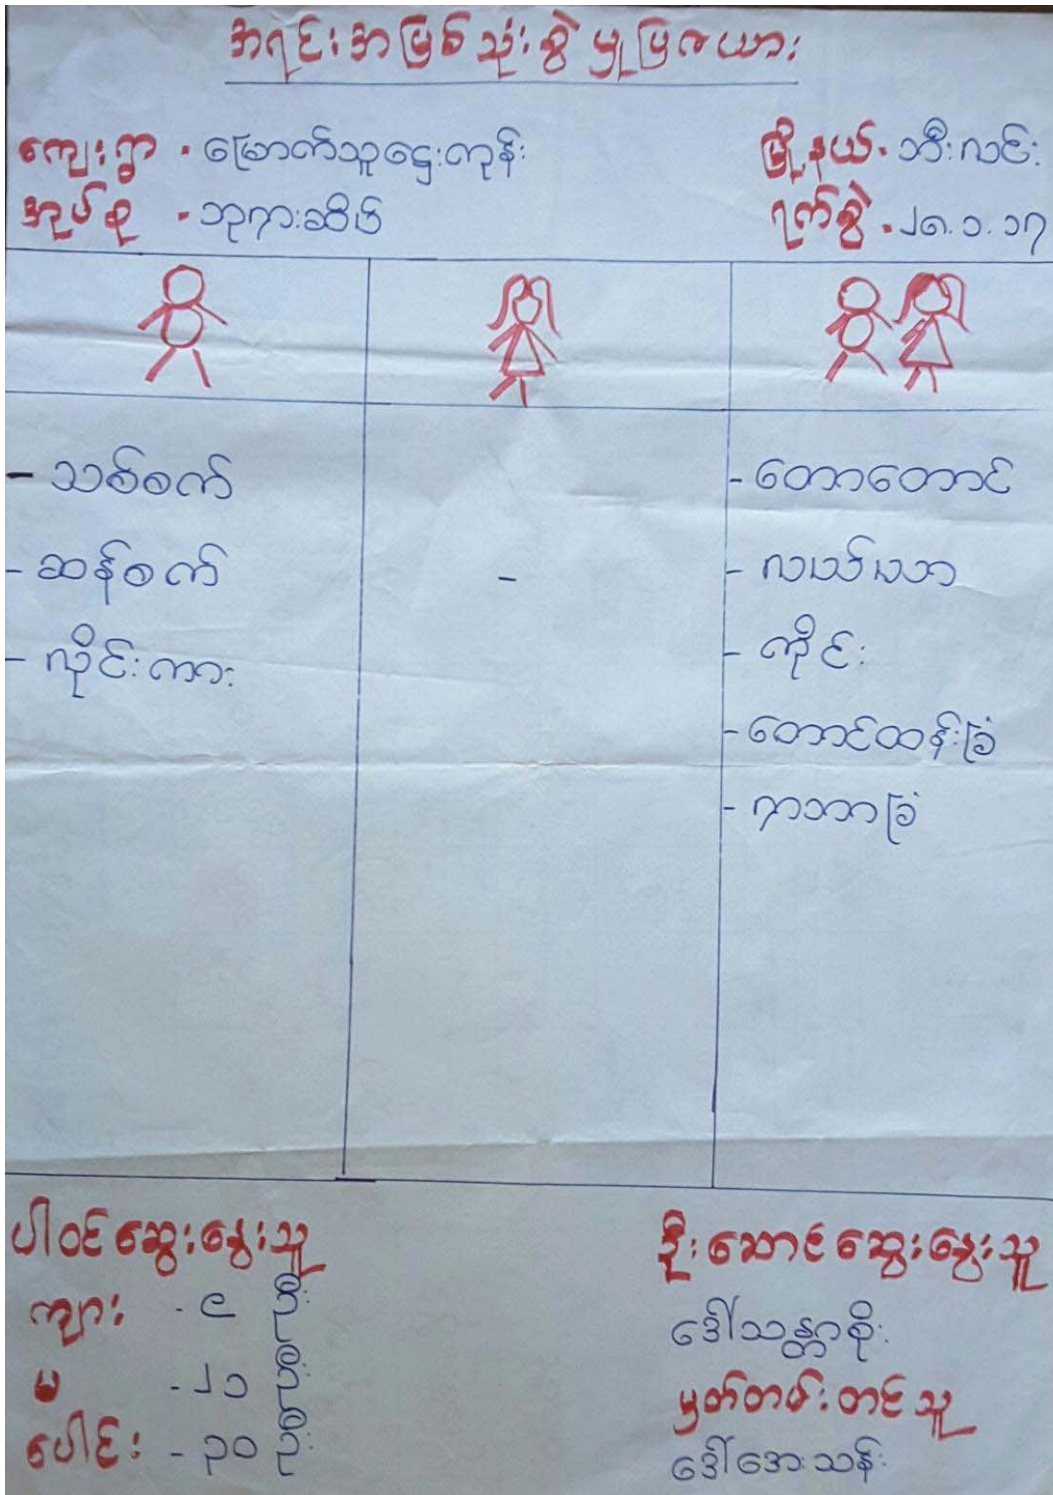 အရင်းအမြစ်သုံးစွဲမှုပြဇယား
ကျေးရွာ - မြောက်သူဌေးကုန်း
မြို့နယ် - ဘီးလင်း
အုပ်စု - ဘုရားဆိပ်
ရက်စွဲ - ၂၈.၁.၁၇
- သစ်စက်
- ဆန်စက်
- လိုင်းကား
-
- တောတောင်
- လယ်ယာ
- ကိုင်း
- တောင်ထန်းခြံ
- ရာဘာခြံ
ပါဝင်ဆွေးနွေးသူ
ကျား - ၉ ဦး
မ - ၂၁ ဦး
ပေါင်း - ၃၀ ဦး
ဦးဆောင်ဆွေးနွေးသူ
ဒေါ်သန္တာစိုး
မှတ်တမ်းတင်သူ
ဒေါ်အေးသန်း